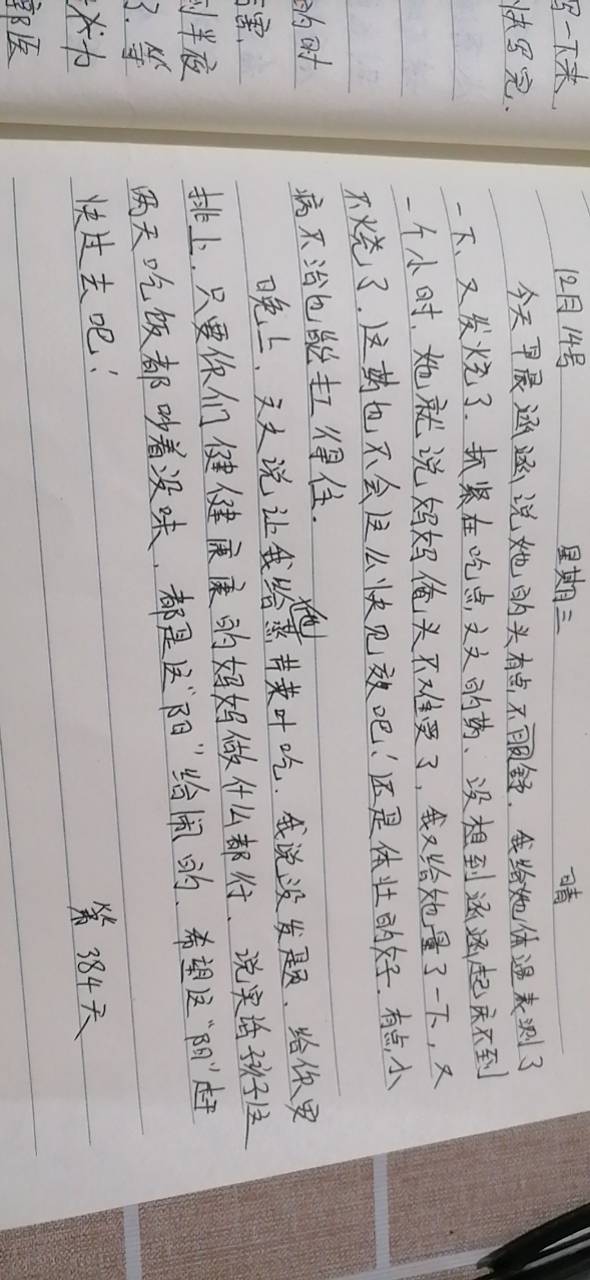 写一下来
快写完.
的时
到半夜
12月14号 星期三 晴
今天早晨涵涵说她的头有点不服舒,我给她体温表测了
一下、又发烧了.抓紧在吃点文文的药、没想到涵涵起床不到
一个小时.她就说妈妈俺头不难受了,我又给她量了一下,又
不烧了.这药也不会这么快见效吧!还是体壮的好.有点小
病不治也能扛得住.
晚上,文文说让我给他蒸芹菜叶吃.我说没发题、给你罗
排上.只要你们健健康康的妈妈做什么都行、说实话孩子这
两天吃饭都吵着没味,都是这“阳”给闹的.希望这“阴”赶
快过去吧!
第384天